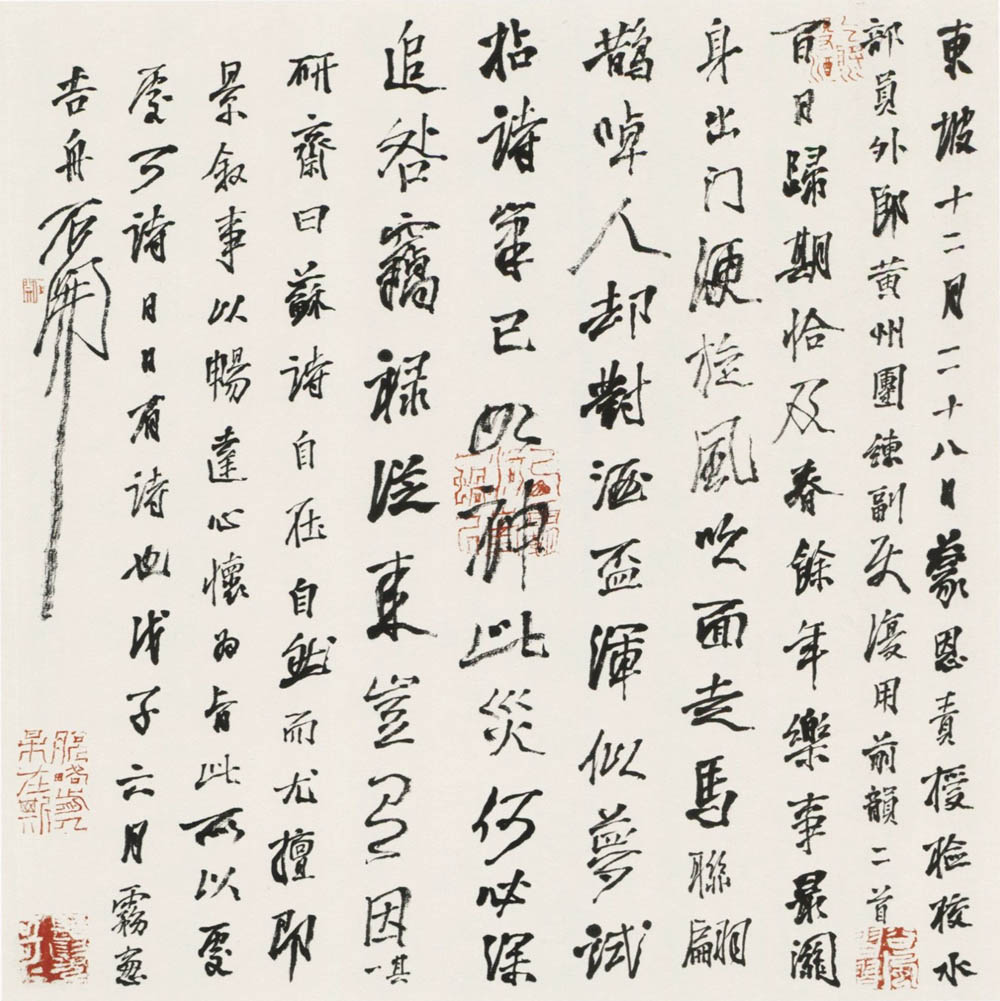 東坡十二月二十八日蒙恩責授检校水
部員外郎黄州團練副史復用前韻二首
百日歸期恰及春餘年樂事最關
身出门便旋風吹面走馬聯翩
鵲啅人却對酒盃渾似夢試
拈詩筆已如神此災何必深
追咎竊禄従来豈有因 其一
研齋曰蘇詩自在自然而尤擅即
景叙事以暢達心懷为旨此所以處
處可詩日日有詩也戊子六月霧窓
吉舟石開